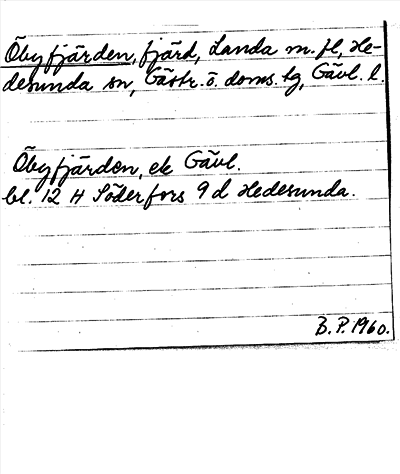 Öbyfjärden, fjärd, Landa m. fl, He-
desunda sn, Gästr. ö. doms. tg, Gävl. l.
Öbyfjärden, ek Gävl.
bl. 12 H Söderfors 9 d Hedesunda.
B. P. 1960.